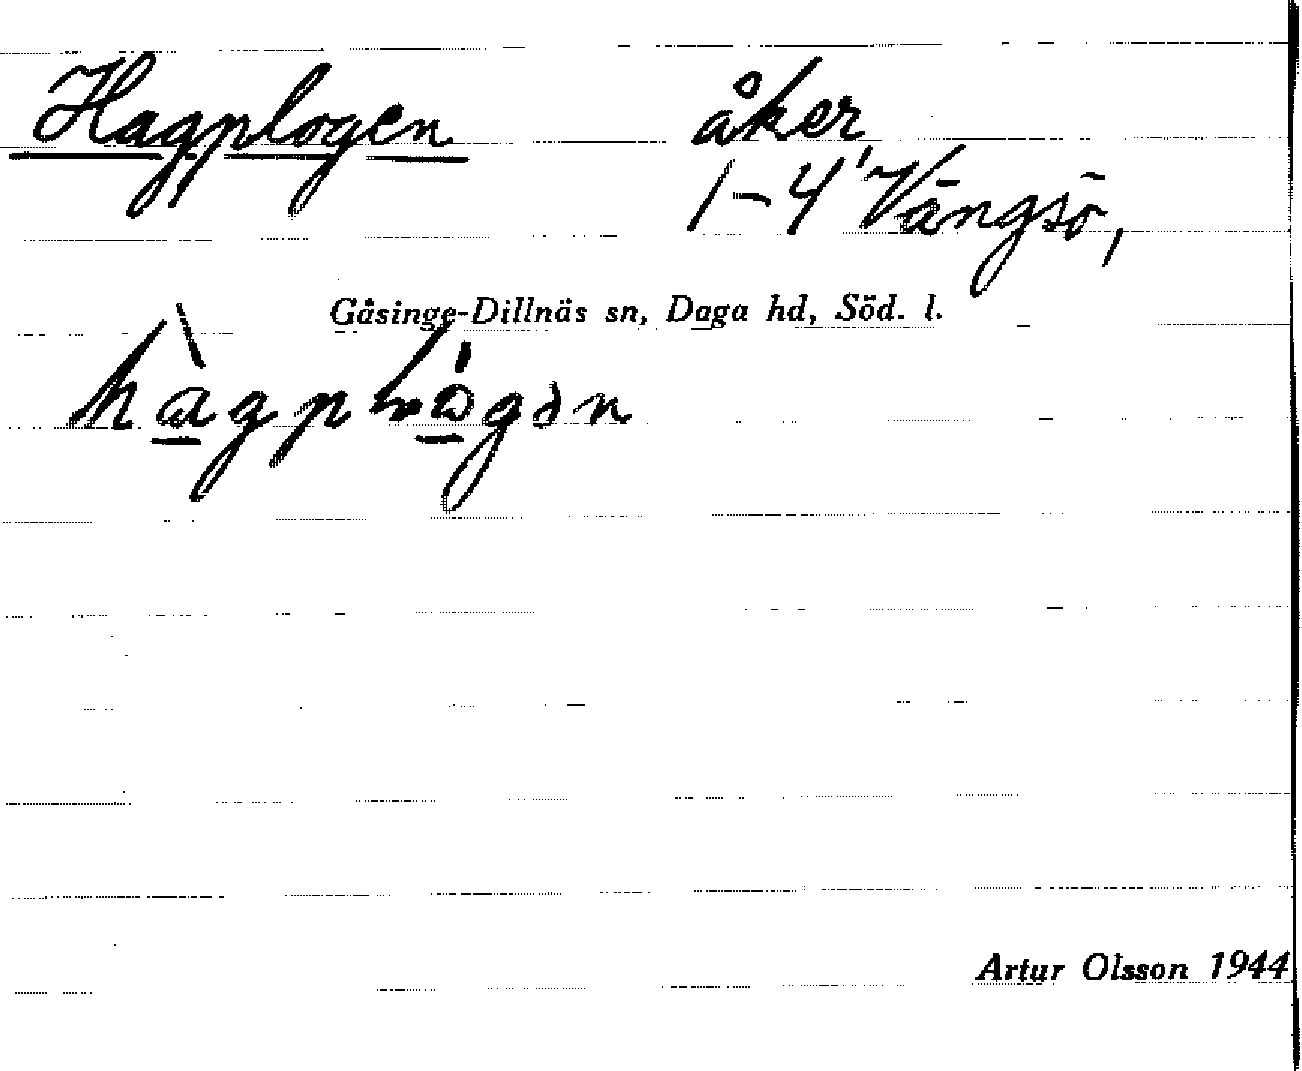 Hagplogen åker
1-4 Vängsö,
Gåsinge-Dillnäs sn, Daga hd, Söd. l.
Artur Olsson 1944